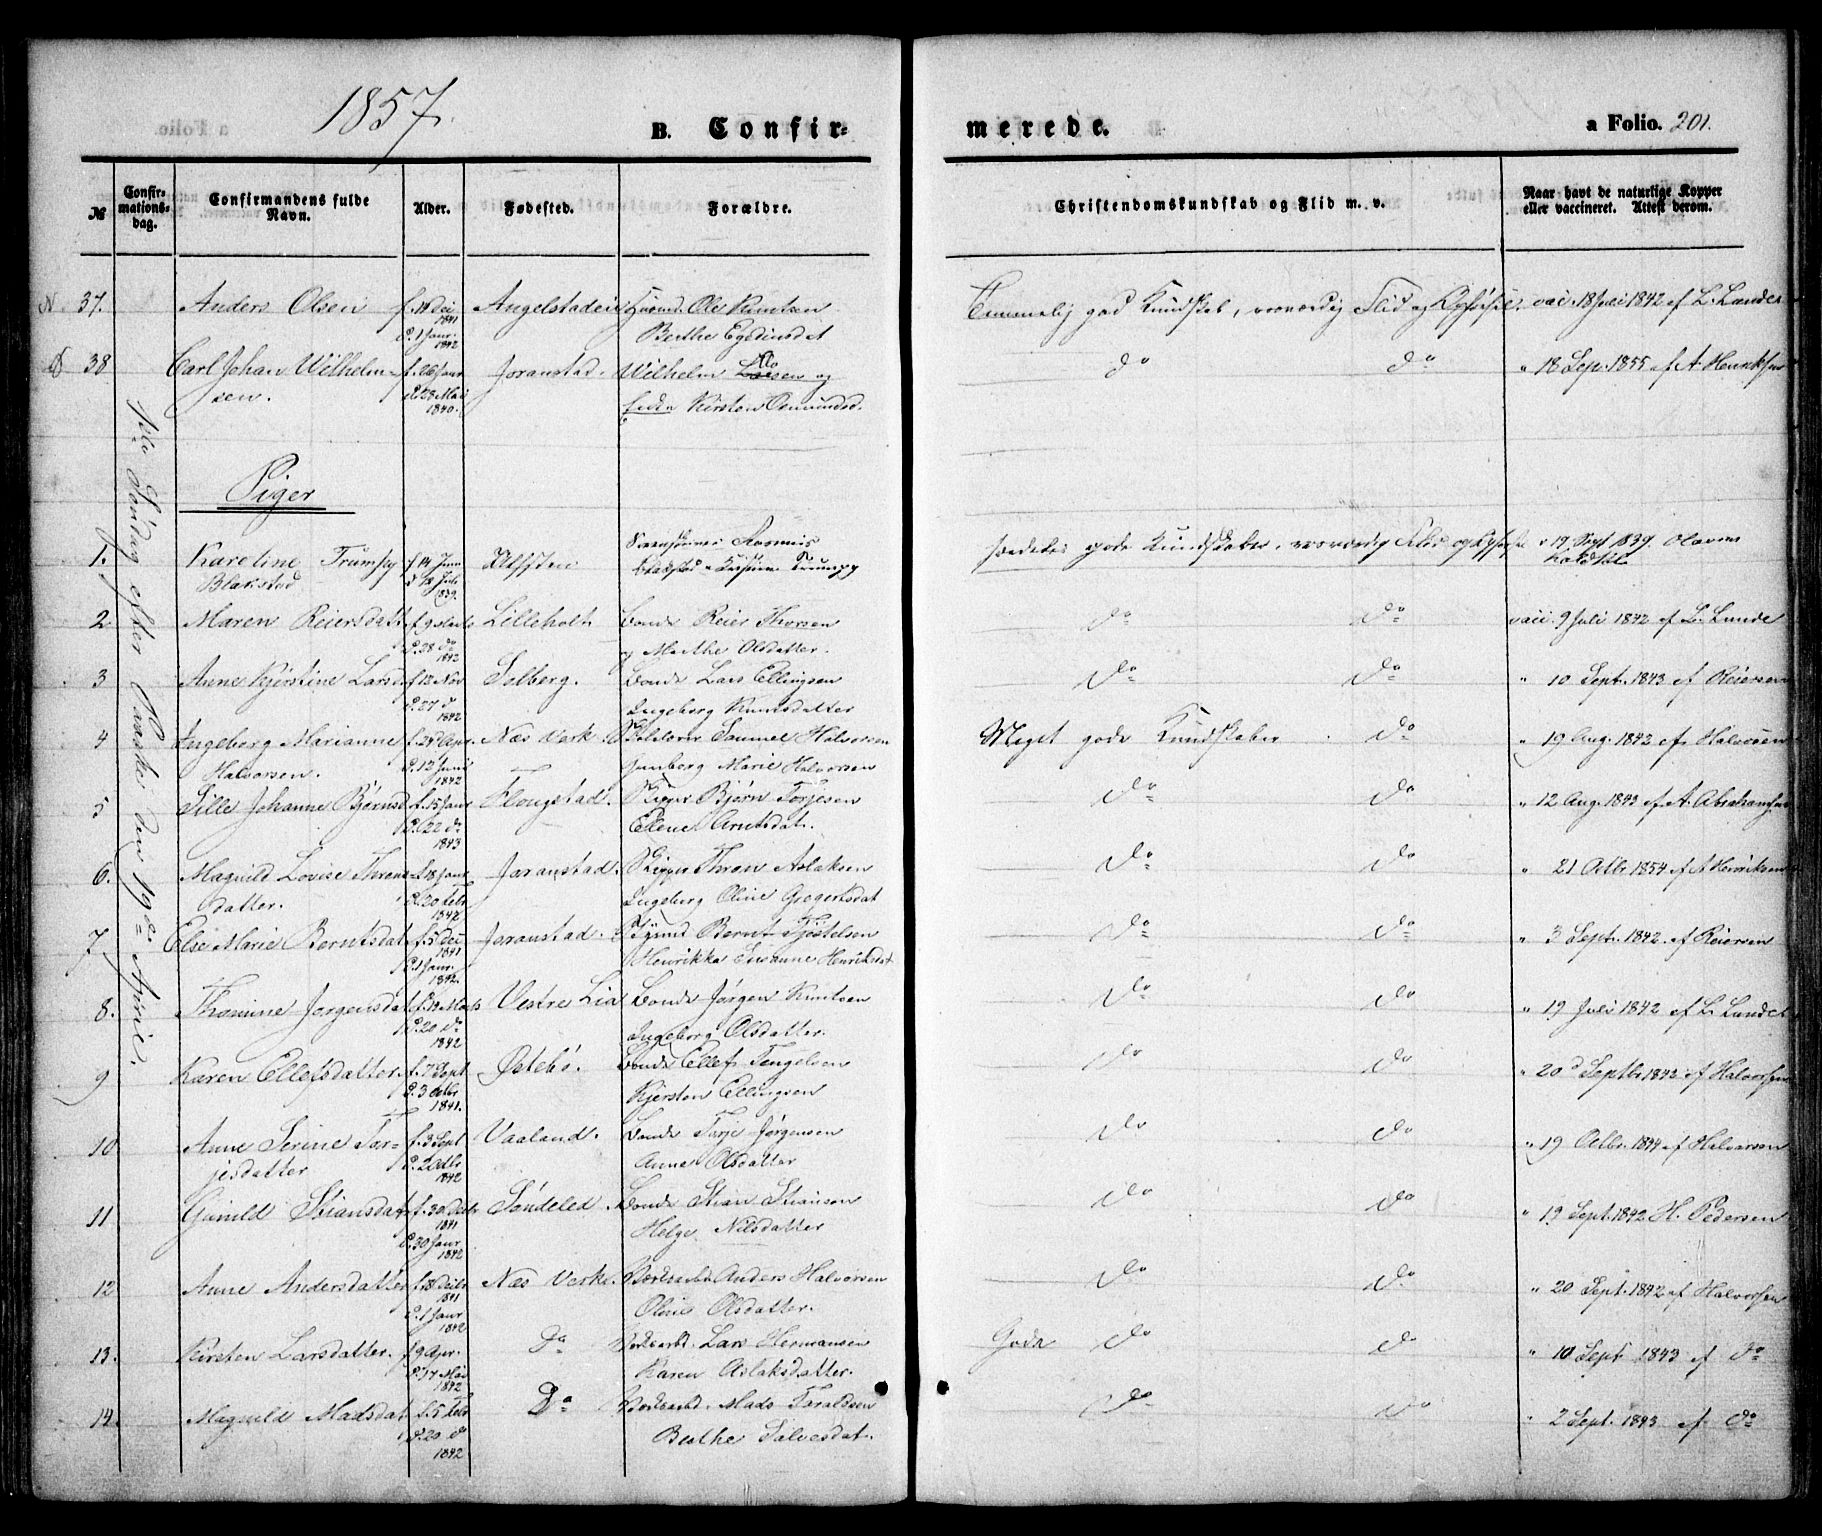 1857.
B. Confirmerede.
a Folio. 201.
№ Confirmationsdag. Confirmandens fulde Navn. Alder. Fødested. Forældre. Christendomskundskab og Flid m. v. Naar havt de naturlige Kopper eller vaccineret. Attest derom.
1ste Søndag efter Paaske den 19de April.
37. Anders Olsen f. 19 Dec 1841 Angelstadeie Ole Knutsen Temmelig god Kundskab, Flid og Opførsel. vac. 18 Juli 1842 af L. Lunde
d. 1 Janr. 1842 Berthe
38 Carl Johan Wilhelm- f. 26 Janr Joranstad. Wilhelm og do do " 18 Sep. 1855 af A. Henriksen
sen. d. 28 Mai 1840. Kirsten Osmundsd.
Piger
1. Karoline Trumpy f 14 Juni Ulfsten Rasmus gode Kundskaber, Flid og Opførsel " 19 Sept 1839. Olavus
Blakstad d 18 Juli 1839. Blakstad Trumpy Holdsti
2. Maren Reiersdatt f 9 Lilleholt Bonde Reier Thorsen do do vacc. 9 Juli 1842 af L. Lunde
d. 28 do 1842 og Marthe Olsdatter.
3 Anne Kjerstine Larsd f 12 Nov Solberg. Bonde Lars Ellingsen do do " 10 Sept. 1843 af Reiersen
d. 27 d 1842 Ingeborg Knutsdatter
4 Ingeborg Marianne f. 24 Apr. Næs Verk Samuel Halvorsen Meget gode Kundskaber do " 19 Aug. 1842 af Halvorsen
Halvorsen. d. 12 Juni 1842 Marie Halvorsen
5 Sille Johanne Bjørnsd f. 15 Janr Flougstad. Skipper Bjørn Torjesen do do " 12 Aug. 1843 af A. Abrahamsen
d. 22 do 1843 Ellen Arntsdat.
6. Magnild Lovise Throns f. 18 Janr Joranstad Skipper Thron Aslaksen do do " 21 Octbr 1854 af A Henriksen
datter. d. 20 Febr 1842 Ingeborg Oline Gregertsdat
7. Elie Marie Berntsdat f. 5 Dec 1841 Joranstad. Bernt Kjøstelsen do do " 3 Sept. 1842. af Reiersen
d. 1 Janr. 1842. Henrikka Susanne Henriksdat
8. Thomine Jørgensdat f. 14 Marts Vestre Lia Bonde Jørgen Knutsen do do " 19 Juli 1842 af L. Lunde
d. 20 do 1842 Ingeborg Olsdatter.
9 Karen Ellefsdatter. f. 7 Sept Østebø. Bonde Ellef Tengelsen do do " 20 d Septbr 1842 af Halvorsen
d. 3 Octbr 1841. Kjersten Ellingsen
10 Anne Serine Tar- f. 3 Sept Vaaland. Bonde Tarje Jørgensen do do " 19 Octbr. 1844 af Halvorsen
jesdatter d. 2 Octbr 1842 Anne Olsdatter
11 Gunild Stiansdat f. 30 Decbr 1841 Søndeled. Bonde Stian Stiansen do do " 19 Sept. 1842 H. Pedersen
d. 30 Janr 1842 Helge Nilsdatter
12 Anne Andersdatter f. 18 Decbr 1841 Næs Verk. Anders Halvorsen do do " 20 Sept. 1842 af Halvorsen
d. 1 Janr 1842 Oline Olsdatter.
13. Kirsten Larsdatter. f. 9 Apr. do Lars Hermansen Gode do do " 10 Sept 1843 af do
d. 17 Mai 1842 Karen Aslaksdatter.
14. Magnild Madsdat f. 5 Febr do Mads Taraldsen do do " 2 Sept. 1843 af do
d. 20 do 1842 Berthe Salvesdat.